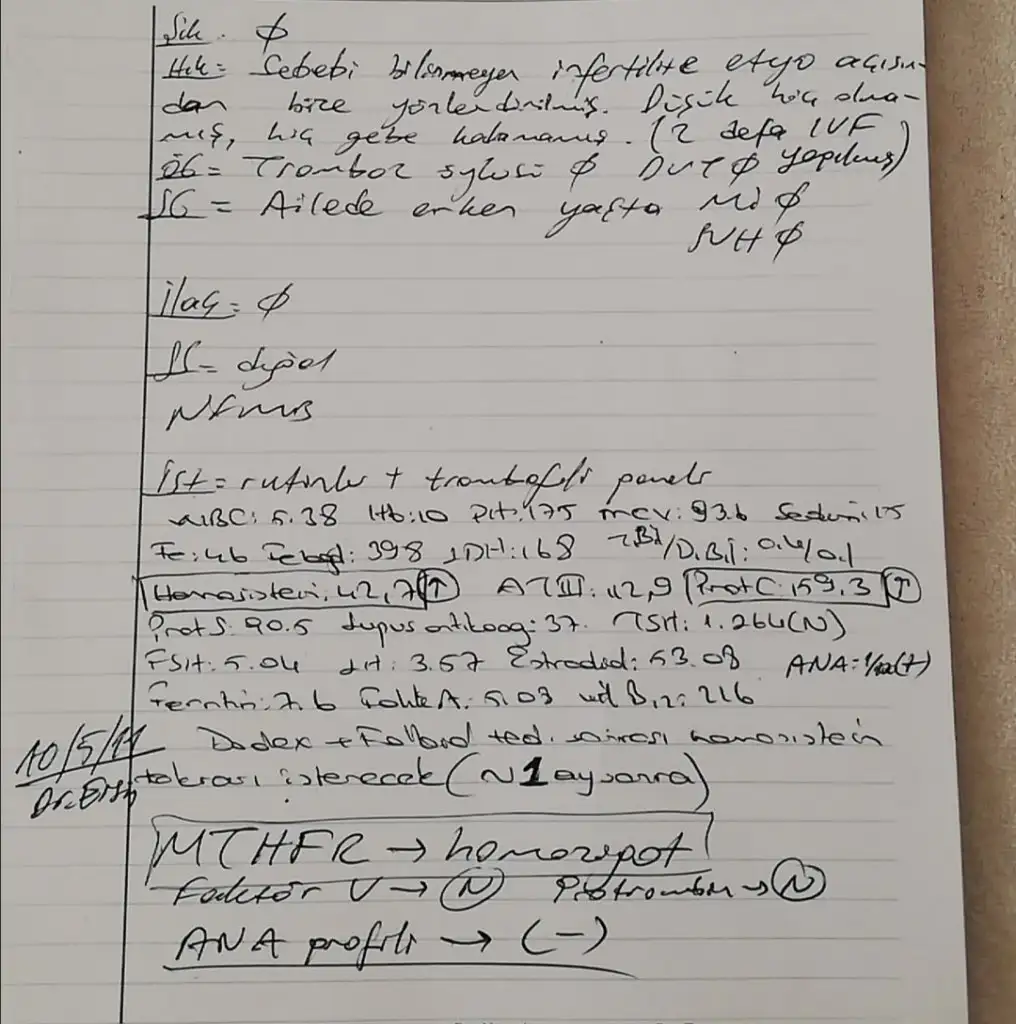 Şik. ϕ
Hik= Sebebi bilinmeyen infertilite etyo açısın-
dan bize yönlendirilmiş. Düşük hiç olma-
mış, hiç gebe kalamamış. (2 defa IVF yapılmış)
ÖG= Tromboz öyküsü ϕ DVT ϕ
SG = Ailede erken yaşta Mİ ϕ
SVH ϕ
İlaç= ϕ
doğal
İst= rutinler + trombofili paneli
WBC: 5.38 Hb:10 Plt:175 mcv: 93.6 Sedim: 15
Fe:46 Febağ: 398 LDH:168 T.Bil/D.Bil: 0.4/0.1
Homosistein: 42,7 (↑) AT III: 112,9 Prot C: 159,3 (↑)
Prot S: 90.5 Lupus antikoag: 37. TSH: 1.264(N)
FSH: 5.04 LH: 3.57 Estradiol: 53.03 ANA=1/100(+)
Ferritin: 7.6 Folik A: 5.03 vit B12: 216
10/5/11 Dodex + Folbiol ted. sonrası homosistein
Dr. tekrarı istenecek (~1 ay sonra)
MTHFR → homozigot
Faktör V → (N) Protrombin → (N)
ANA profili → (-)